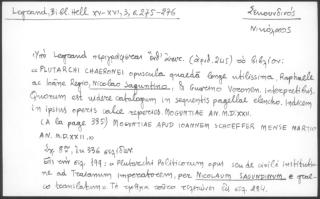 Legrand, Bibl. Hell XV-XVI, 3, σ. 275-276
Σεκουνδινός
Νικόλαος
Ὑπὸ Legrand περιγράφεται (ἀριθ. 245) τὸ βιβλίον:
« PLUTARCHI CHAERONEI opuscula quaedā longe utilissima, Raphaele
ac Ioāne Regio, Nicolao Saguntino, & Guarino Veronen. interpretibus.
Quorum est uidere catalogum in sequentis pagellae elencho. Indicem
in ipsius operis calce reperies. MOGUNTIAE AN. M.D.XXII.
(A la page 335) MOGUNTIAE APUD IOANNEM SCHOEFFER MENSE MARTIO
AN. M.D.XXII.»
Σχ. 8ον, ἐκ 336 σελίδων.
Ἐπὶ τῆς σελ. 199: « Plutarchi Politicorum opus seu de civili institutio-
ne ad Traianum imperatorem, per NICOLAUM SAGUNDINUM e grae-
co translatum» Τὸ τμῆμα τοῦτο τερματίζει ἐν σελ. 284.